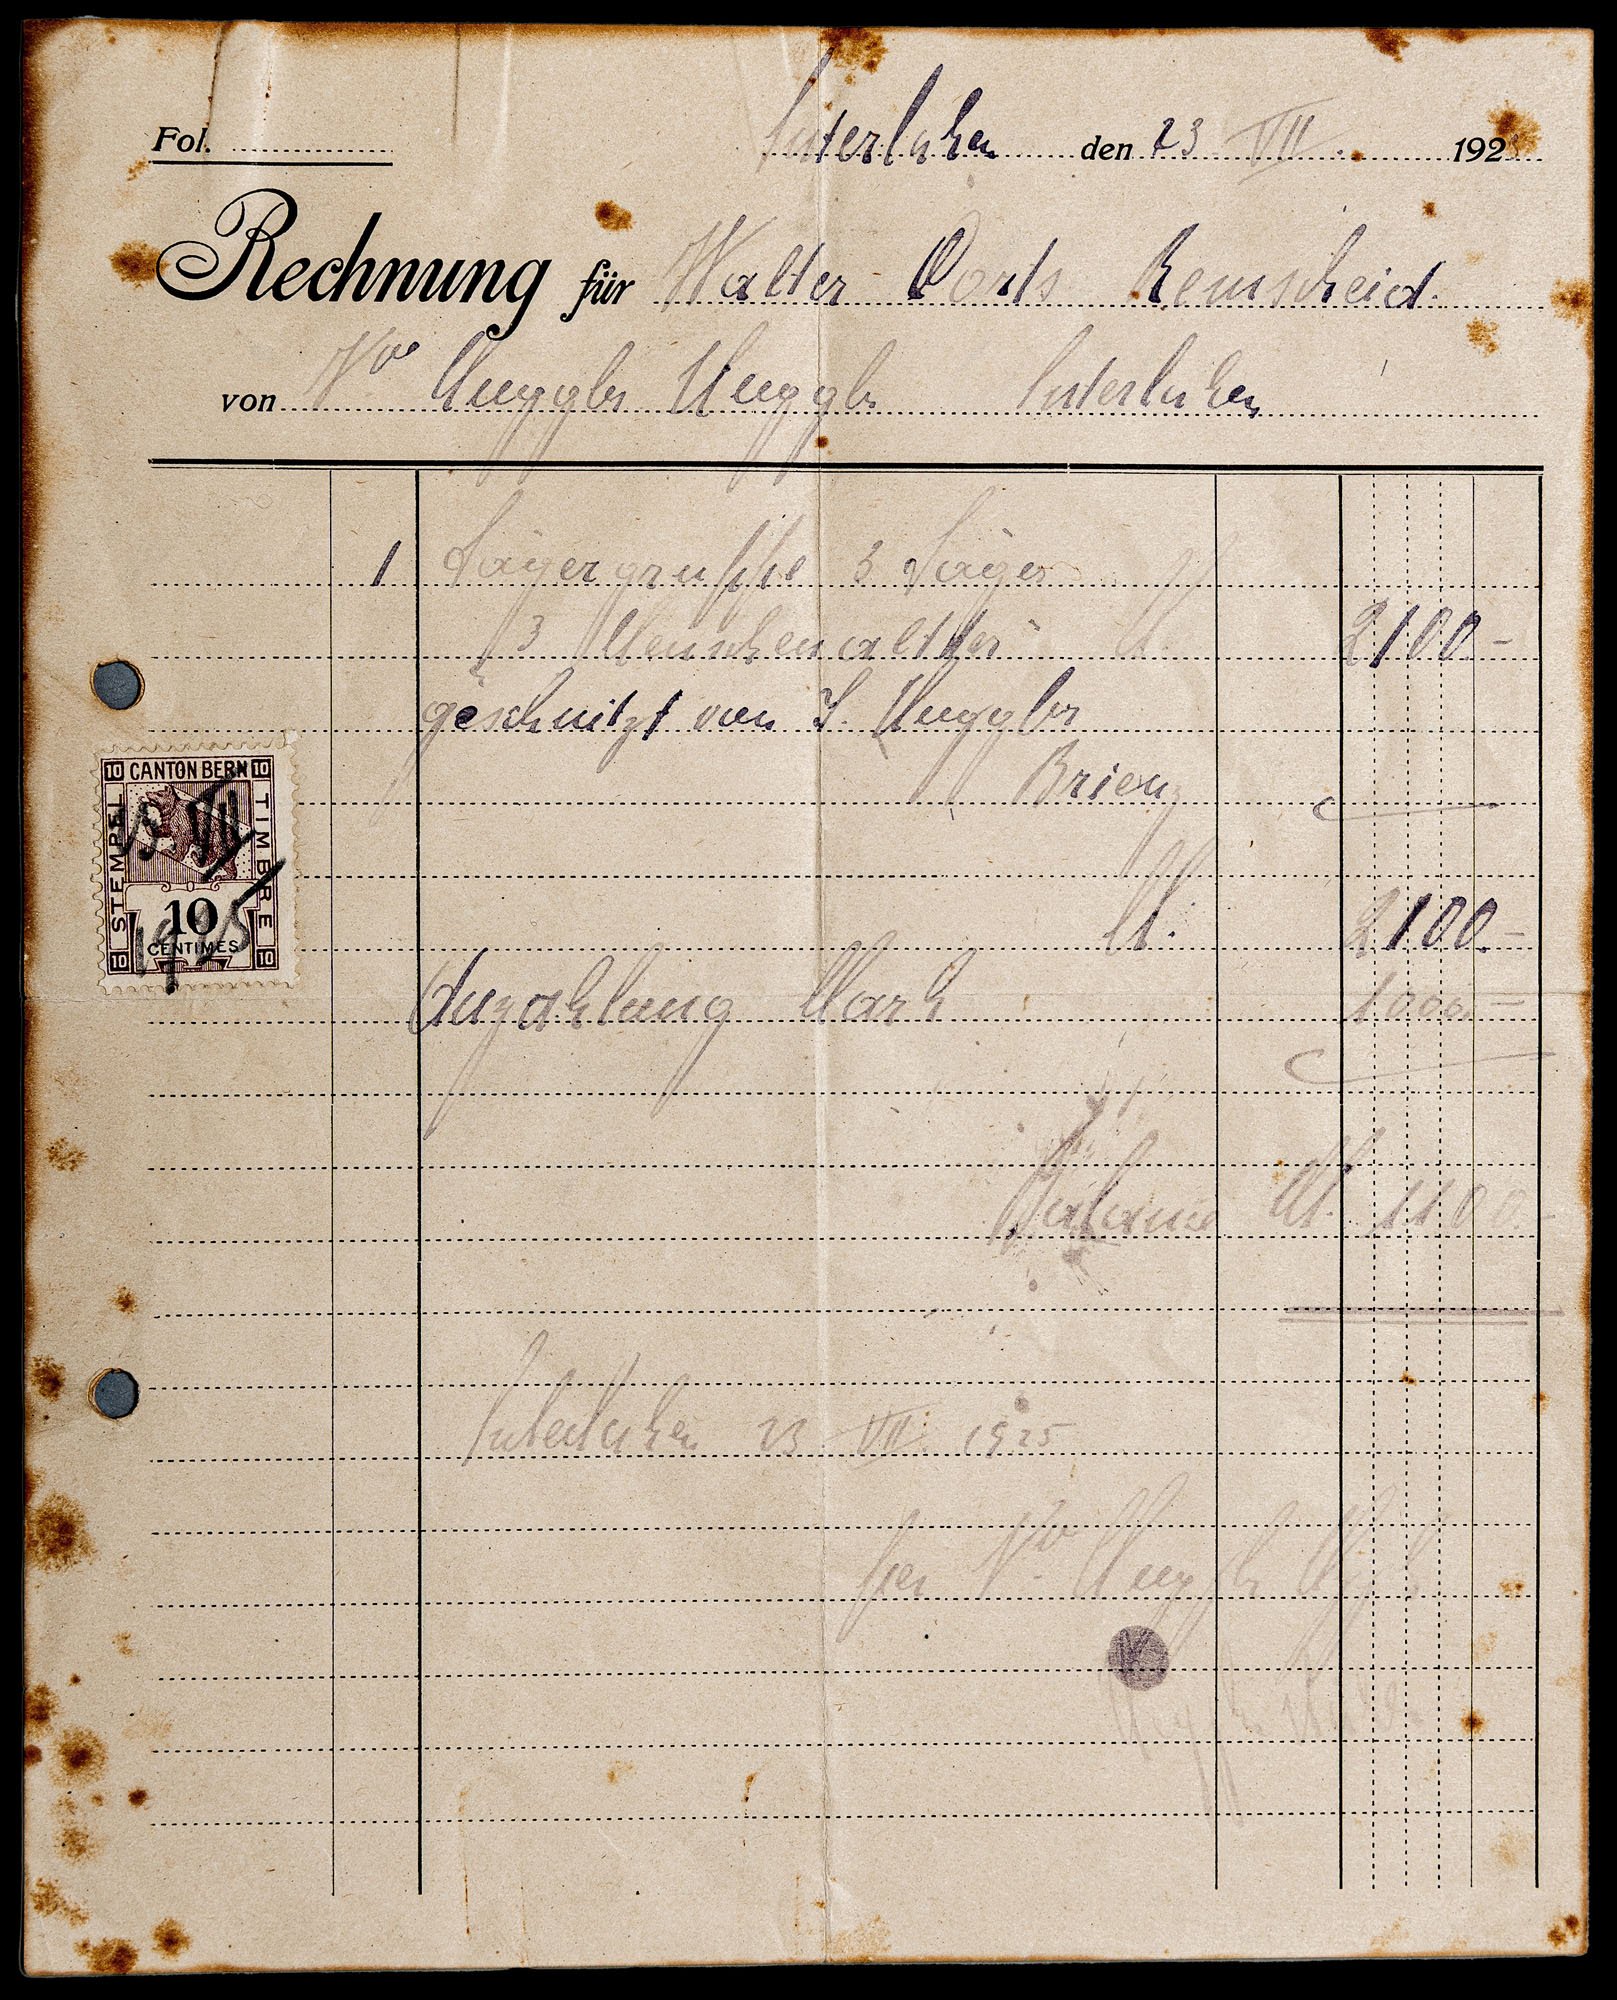 Fol.
Interlaken den 23 VII. 192
Rechnung für Walter Corts Remscheid.
von Wve Huggler Huggler Interlaken
1 Jägergruppe 3 Jäger
3 Menschenalter M. 2100.-
geschnitzt von J. Huggler
Brienz
M. 2100.-
Anzahlung Mark 1000.-
Balance M. 1100.-
Interlaken 23 VII. 1925
per Wve Huggler
10 CANTON BERN 10
STEMPEL
TIMBRE
VII
1925
10
CENTIMES
10 10